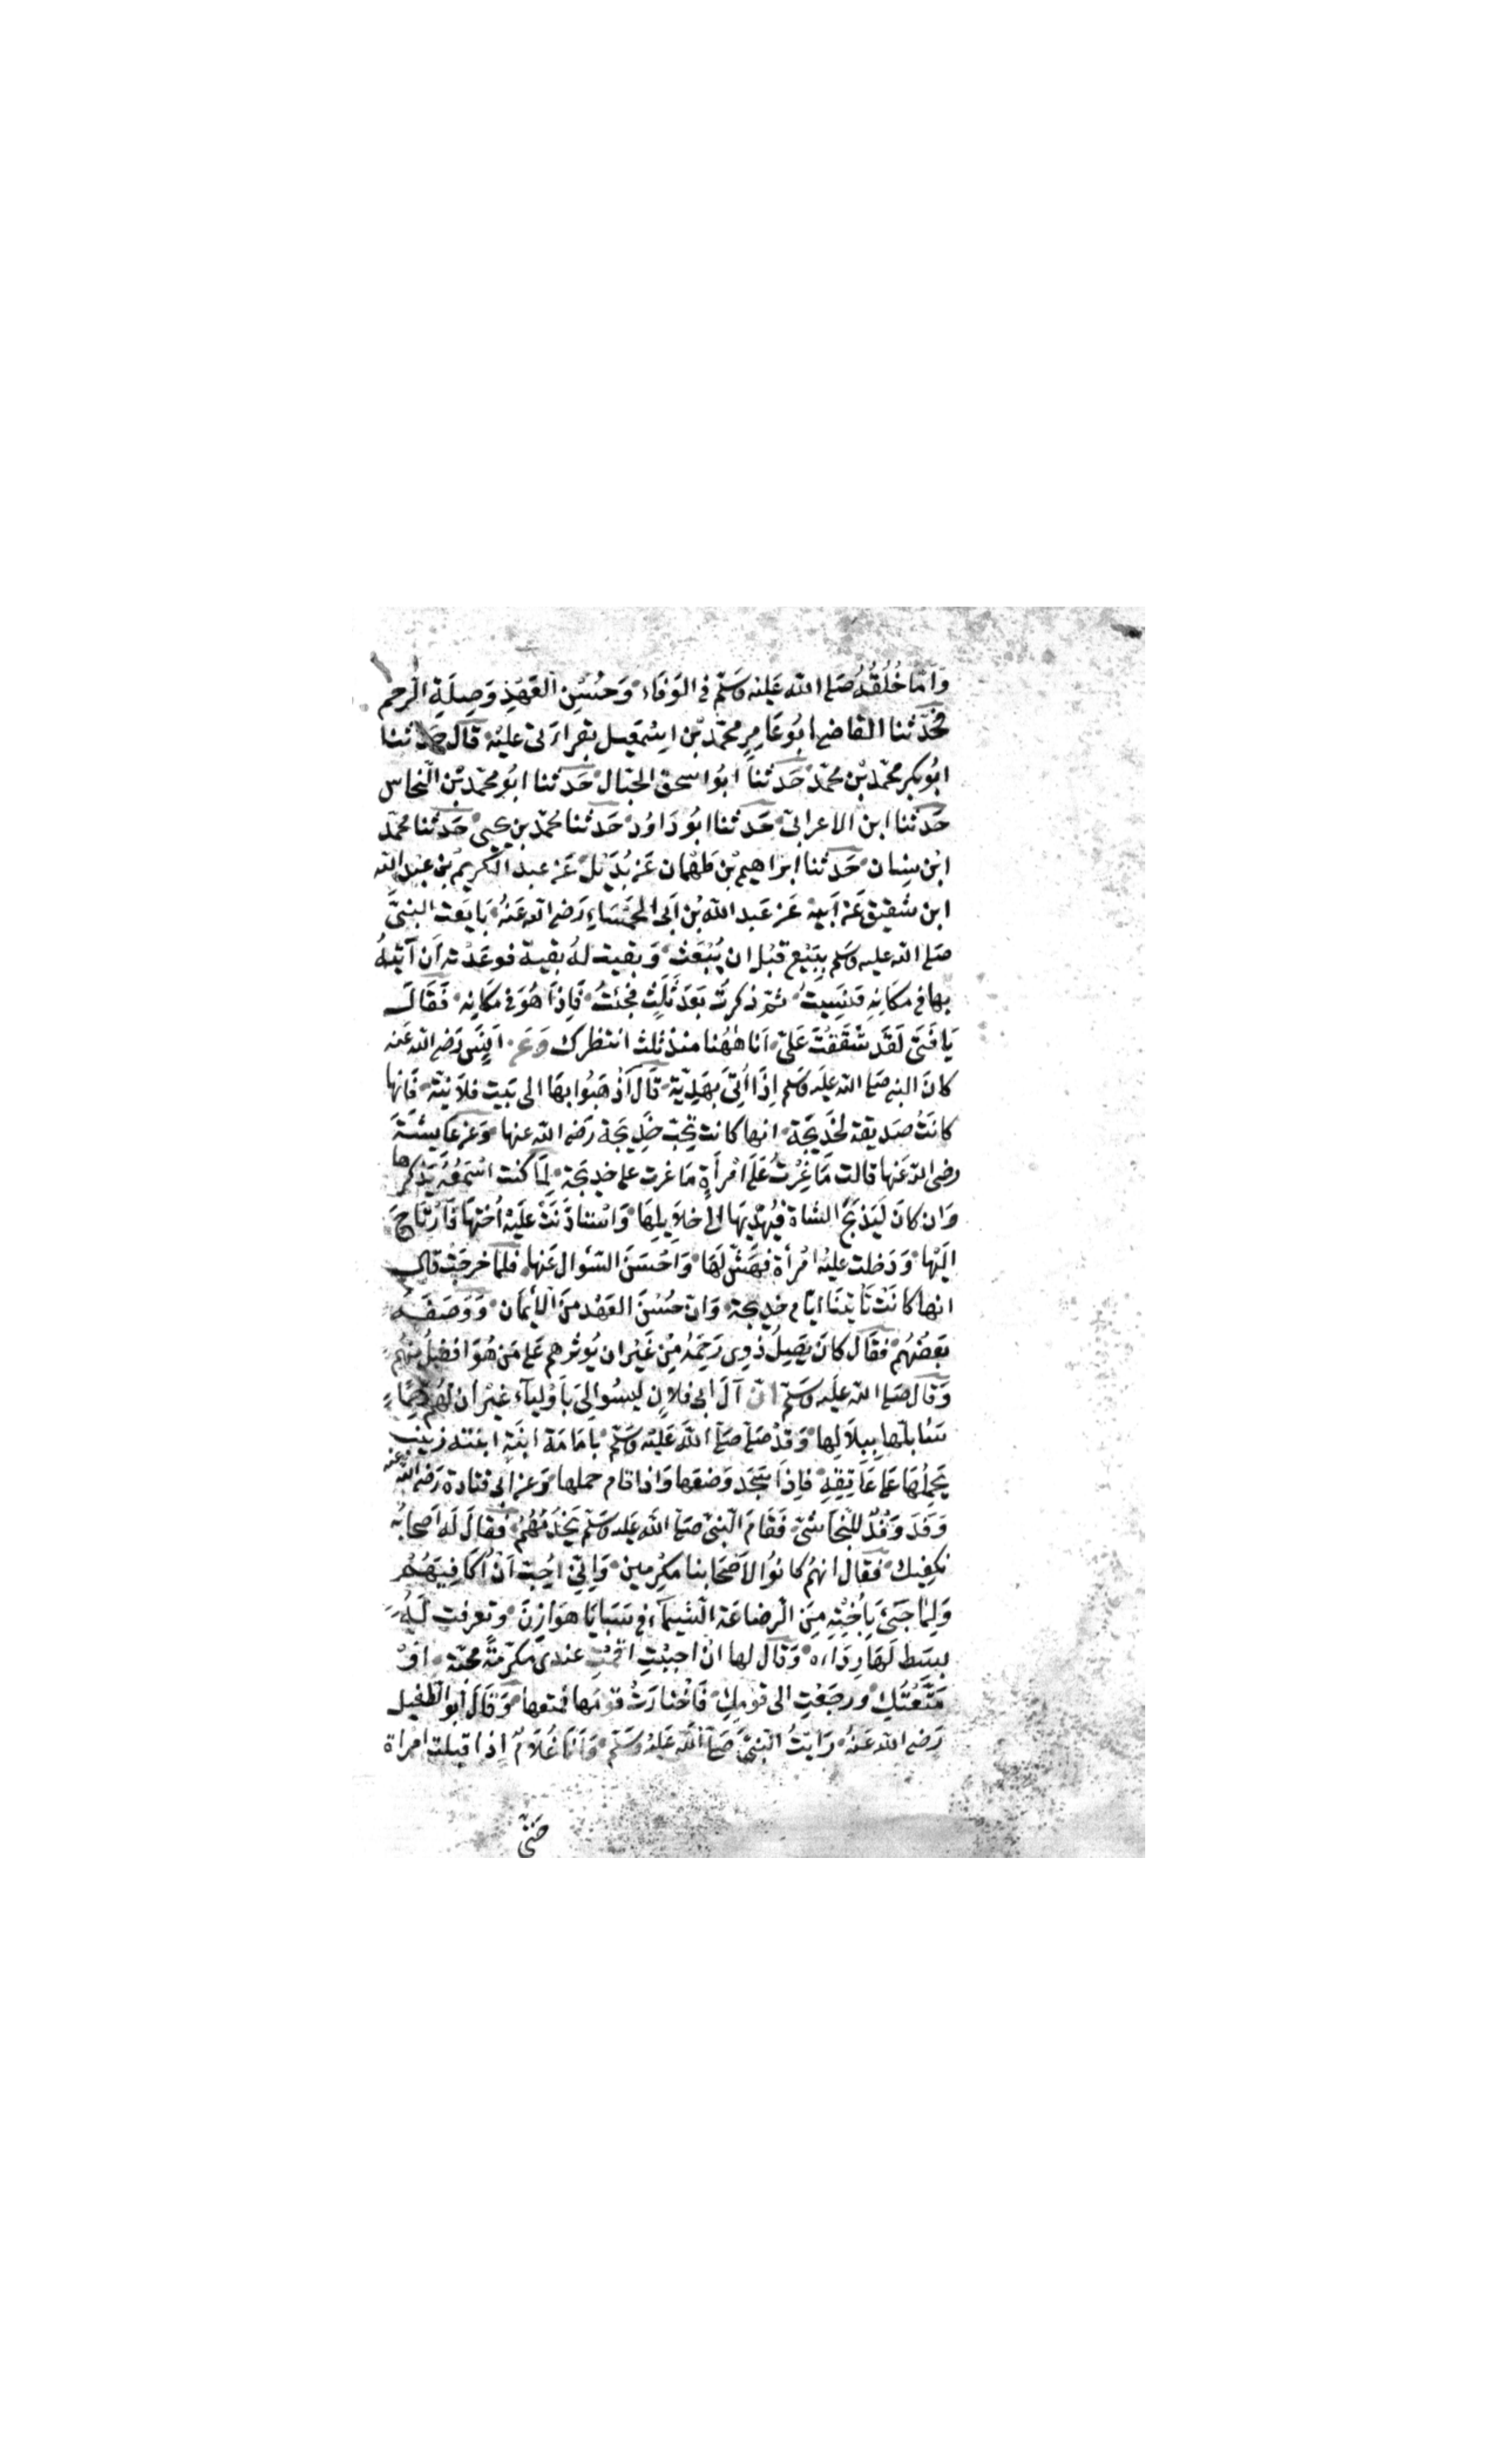 وَاَمّا خُلُقُهُ صَلى الله عَليْه وَسَلّم فى الوَفَاء وَحُسْنِ العَهْدِ وَصِلَةِ الرحم
فحَدّثنا القاضى ابُو عَامِرٍ محمّد بْن اسْمَعيل بقراءَتى عليْه قال حدثنا
ابُو بكر محمّد بْن محمّد حَدثنا ابُو اسحق الحبّال حَدثنا ابُو محمّد بْن النحاس
حَدثنا ابن الاعرابىّ حَدثنا ابُو دَاوُد حَدثنا محمّد بن يحيى حَدثنا محمّد
ابْن سِنان حَدثنا ابرَاهيم بْن طَهْمان عَنْ بُدَيْل عَنْ عبد الكريم بْن عبد الله
ابن شقيق عَنْ اَبيه عَنْ عَبد الله بْن اَبى الحَمْسَاءِ رَضى الله عَنْهُ بَايَعت النبىَّ
صَلى الله عليه وسَلم ببَيْع قبْل ان يُبْعَث وَبقيت لهُ بقية فوعَدْته اَن آتيَهُ
بها فى مكانِهِ فنَسِيتُ ثمّ ذكرتُ بَعدَ ثَلٰثٍ فجئتُ فاِذا هُوَ فى مَكانه فَقَالَ
يَا فَتى لَقَد شَقَقْتَ عَلىّ اَنا هٰهُنا منذ ثلث انتظرك وَعَن اَنَسٍ رَضى الله عَنه
كانَ النبى صَلى الله عليَه وَسَلم اِذَا اُتِىَ بهَدِيّة قَالَ اَذْهَبُوا بهَا الى بَيت فلاَنَة فَانها
كانَتْ صَدِيقة لخَدِيجَة انها كانت تحِبّ خَدِيجَة رَضى الله عنها وَعَن عَايشَةَ
رضى الله عَنها قالت مَا غِرْتُ عَلَى امْرأةٍ مَا غرت على خدِيجَة لِمَا كنت اسْمَعُهُ يَذكرها
وَان كانَ لَيَذْبَحُ الشاة فيُهْدِيهَا الى خلاَيلِهَا وَاسْتاذَنَتْ عَليْهِ اُختهَا فَارْتَاحَ
الَيْها وَدَخلت عليْه امْرأة فهَشّ لَهَا وَاَحْسَنَ السّؤال عَنها فلمّا خرجَت قال
انها كانَتْ تأتينَا ايّام خدِيجة وَانّ حُسْنَ العَهْد مِنَ الاِيمَان وَوَصَفَهُ
بَعضُهُم فقَال كانَ يَصِلُ ذوِى رَحِمِهِ مِنْ غَيْر ان يُوثرهم عَلى مَنْ هُوَ افضلُ منهُم
وَقال صَلى الله عليه وسَلّم انّ آلَ ابى فلانٍ ليسُوا لِىَ بِاَوْليآء غيْرَ ان لهُم رَحِمًا
سَأبُلّها بِبِلاَلِها وَقدْ صَلّى صَلى الله عَليْه وَسَلّم بِامَامَة ابنَةِ ابنَته زينب
يَحمِلُهَا عَلى عَاتِقِهِ فاِذَا سَجَدَ وَضعَها وَاذا قام حملها وَعن ابى قتادة رَضى الله عنه
وَفَدَ وَفْدٌ للنّجَاشىّ فَقَامَ النّبىّ صَلى الله عَليه وسَلّم يَخْدُمُهُمْ فقالَ لَه اَصْحابُه
نكفِيك فقال انهُم كانُوا لاَصْحَابنا مكرِمين وَاِنِّى اُحِبّ اَنْ اُكافِيَهُمْ
وَلمّا جىَء بِاُخْتِهِ مِنَ الرضاعَة الشيمآءِ فى سَبَايَا هَوَازِنَ وتعرفت لَهُ
بسَط لَهَا رِدَاءه وَقال لها انْ احببْتِ اقمتِ عندِى مكرّمَةً محبّة اوْ
مَتّعْتُكِ ورجَعْتِ الى قومِكِ فَاخْتارَتْ قومَها فمتعها وَقالَ ابُو الطفيل
رَضى الله عَنْهُ رَايْتُ النّبىَّ صَلى الله عَليْه وسَلم وَاَنَا غُلاَمٌ اِذا قبلت امْراة
حَتّى